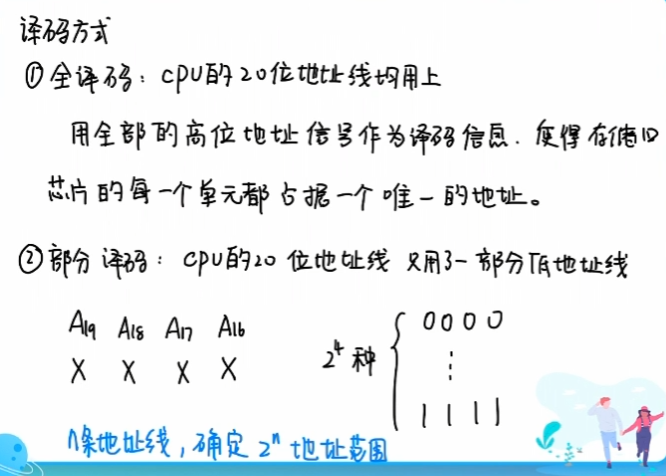 译码方式
①全译码：CPU的20位地址线均用上
用全部的高位地址信号作为译码信息．使得存储
芯片的每一个单元都占据一个唯一的地址。
②部分译码：CPU的20位地址线 只用了一部分低地址线
A19 A18 A17 A16
X X X X
2^4种 { 0000
⋮
1111
n条地址线，确定 2^n 地址范围